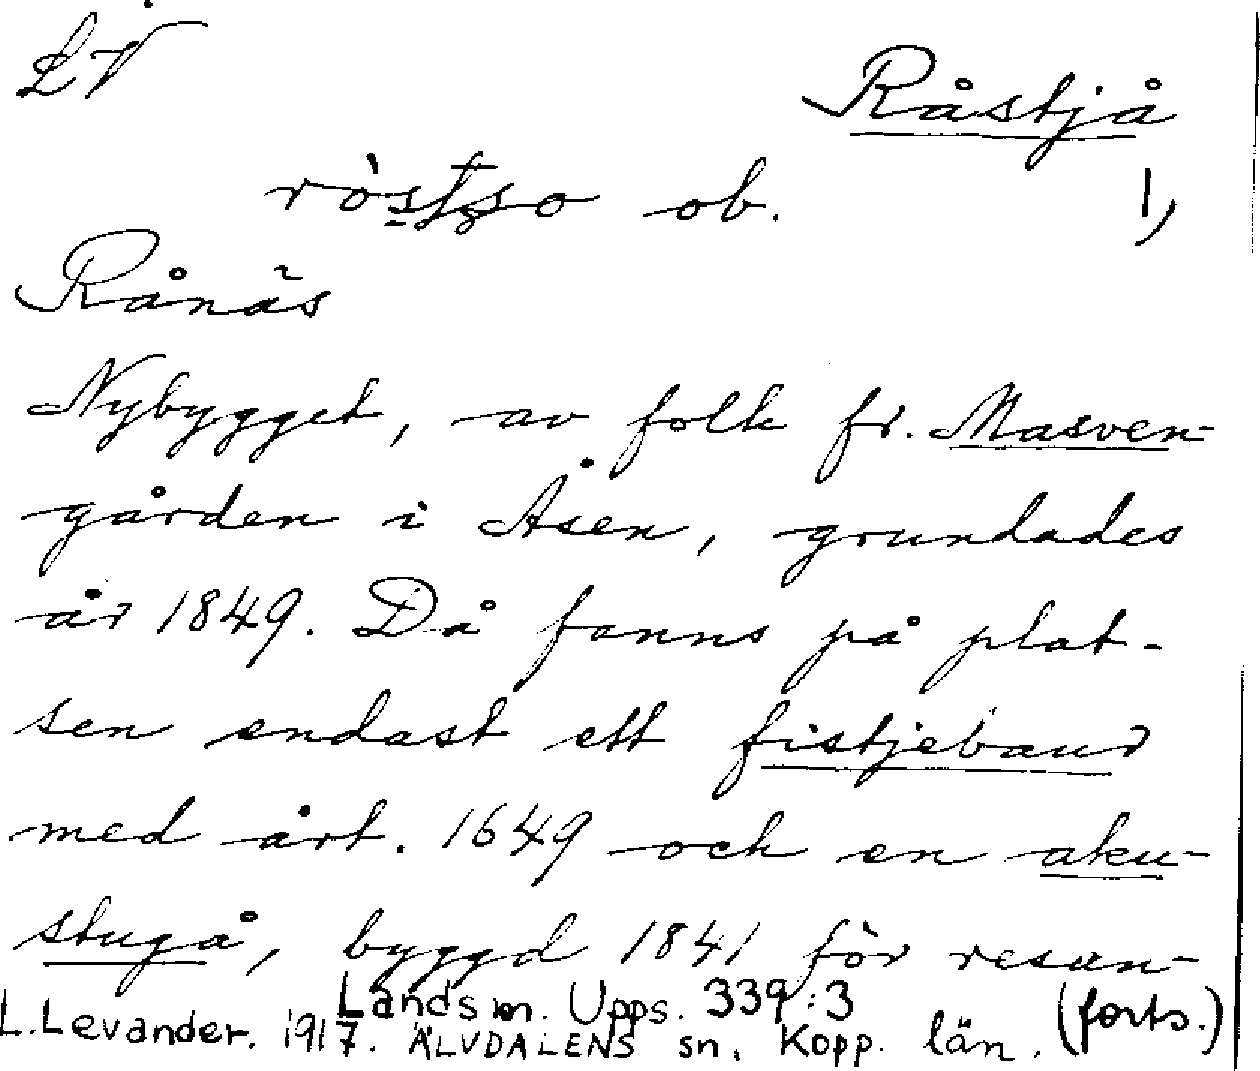 ÄV
Råstjå
ob.
1,
Rånäs
Nybygget, av folk fr. Masven-
gården i Åsen, grundades
år 1849. Då fanns på plat-
sen endast ett fistjebaur
med årt. 1649 och en aku-
stugå, byggd 1841 för resan-
Landsm. Upps. 339:3
L. Levander. 1917. ÄLVDALENS sn. Kopp. län. (forts.)